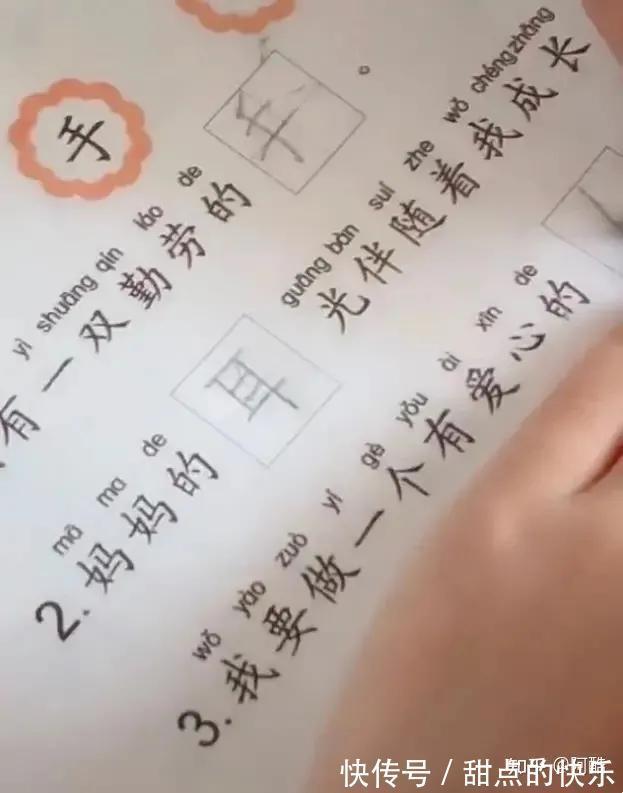 手
yì shuāng qín láo de
有一双勤劳的 。
mā ma de guāng bàn suí zhe wǒ chéngzhǎng
2.妈妈的耳光伴随着我成长
wǒ yào zuò yí gè yǒu ài xīn de
3.我要做一个有爱心的
知乎 @阿酷
快传号 / 甜点的快乐